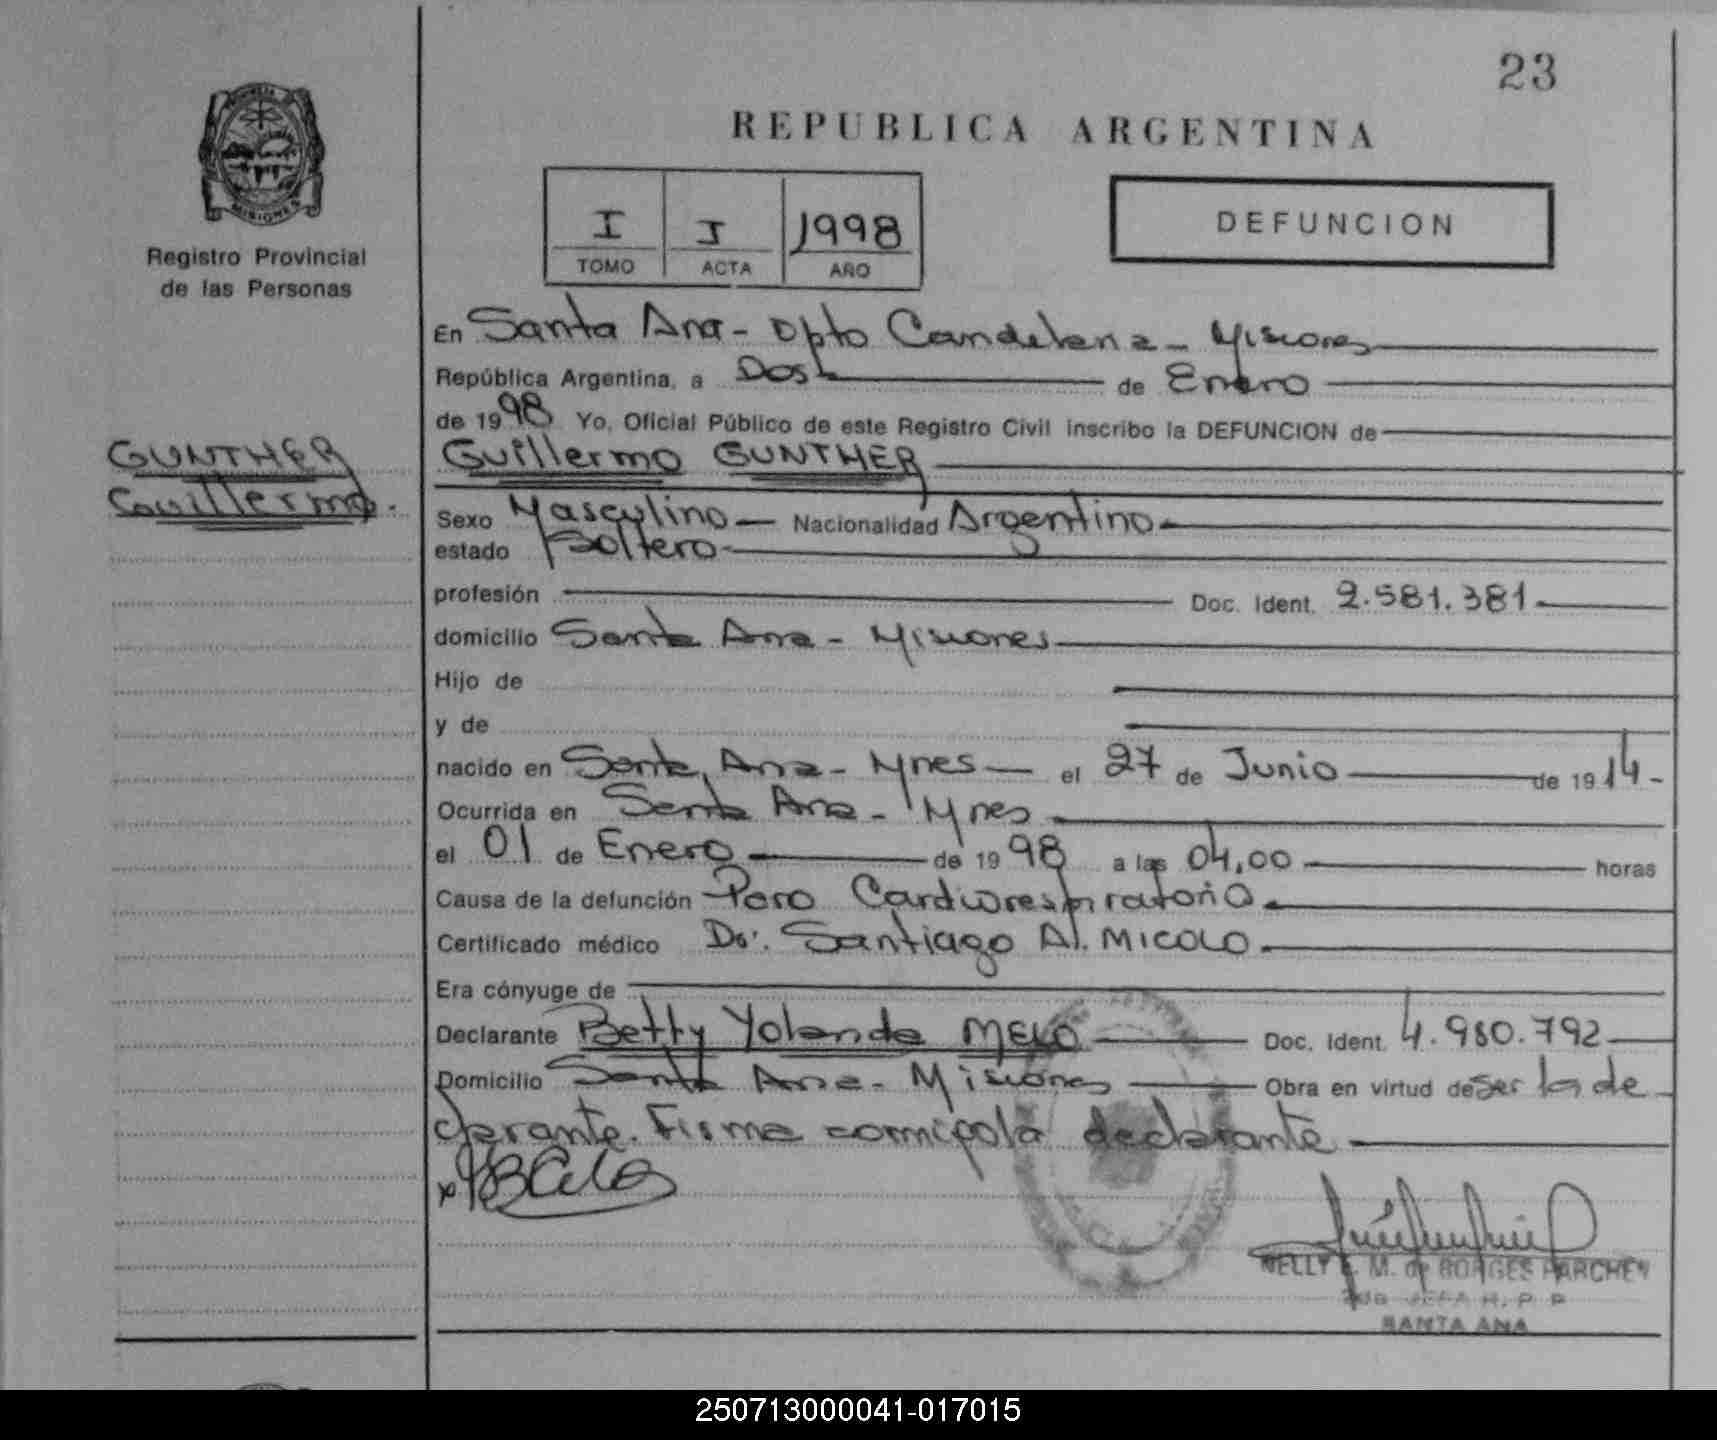 23
REPUBLICA ARGENTINA
MISIONES
Registro Provincial
de las Personas
I I 1998
TOMO ACTA AÑO
DEFUNCION
En Santa Ana - Dpto Candelaria - Misiones
República Argentina, a Dos de Enero
de 1998 Yo, Oficial Público de este Registro Civil inscribo la DEFUNCION de
GUNTHER
Guillermo.
Guillermo GUNTHER
Sexo Masculino Nacionalidad Argentino
estado Soltero
profesión Doc. Ident. 2.581.381
domicilio Santa Ana - Misiones
Hijo de
y de
nacido en Santa Ana - Mnes el 27 de Junio de 1914
Ocurrida en Santa Ana - Mnes
el 01 de Enero de 1998 a las 04,00 horas
Causa de la defunción Paro Cardiorespiratorio
Certificado médico Dr. Santiago Al. MICOLO
Era cónyuge de
Declarante Betty Yolanda MELO Doc. Ident. 4.980.792
Domicilio Santa Ana - Misiones Obra en virtud de ser la de
clarante. Firma conmigo la declarante
NELLY M. de BORGES PARCHEN
JEFA R. P. P.
SANTA ANA
250713000041-017015